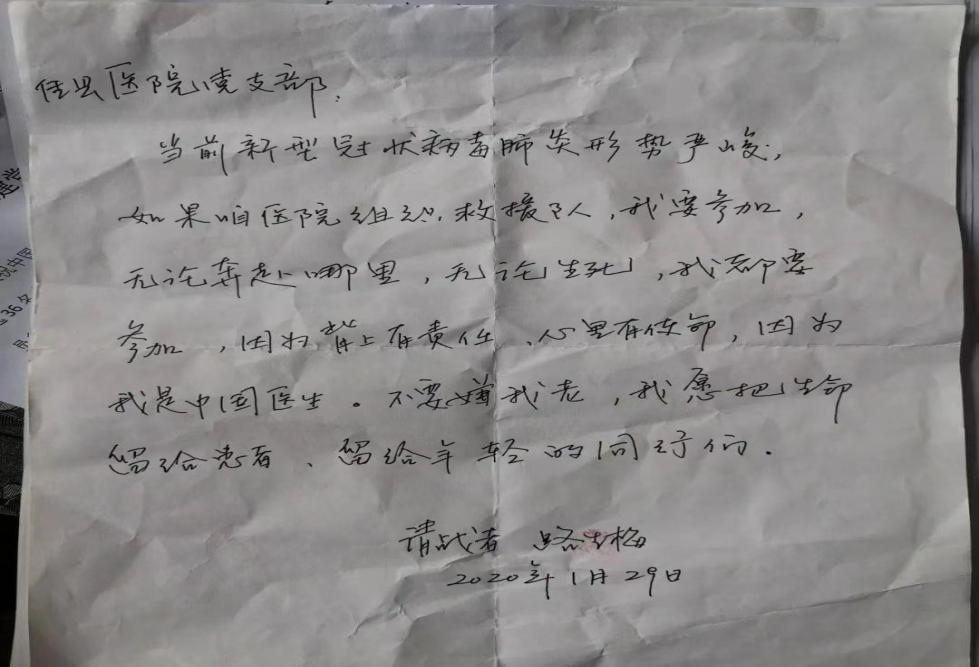 任县医院党支部,
当前新型冠状病毒肺炎形势严峻,
如果咱医院组织救援队,我要参加,
无论奔赴哪里,无论生死,我都要
参加,因为背上有责任、心里有使命,因为
我是中国医生。不要嫌我老,我愿把生命
留给患者、留给年轻的同行们.
请战者 路 梅
2020年1月29日
36名